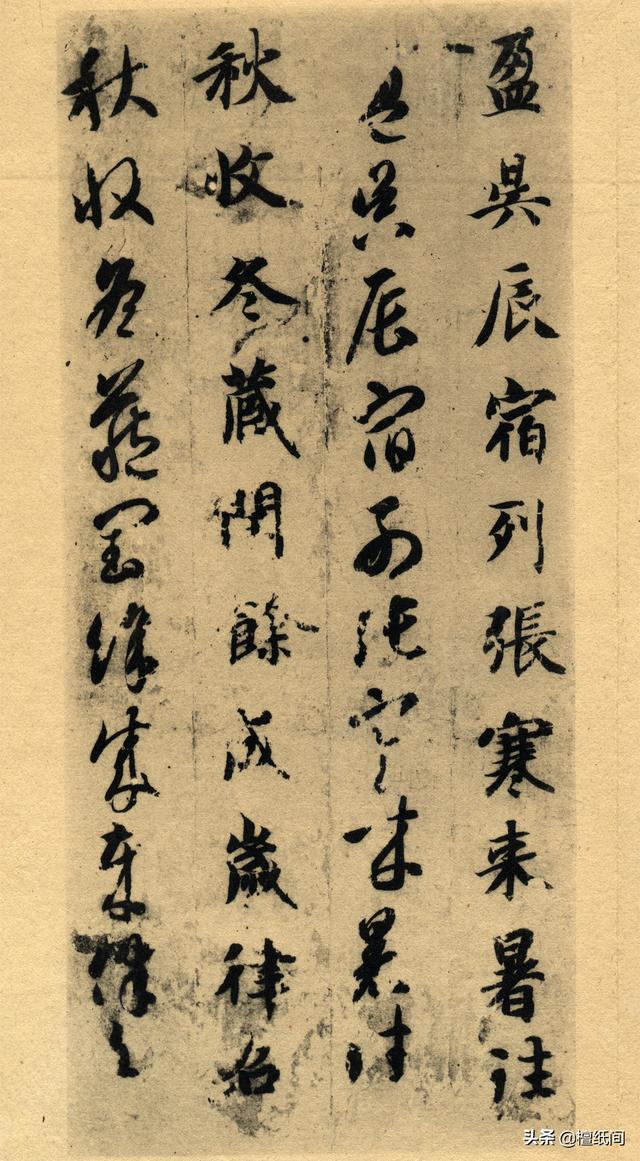 盈昃辰宿列張寒来暑往
盈昃辰宿列張寒来暑往
秋收冬藏閏餘成歲律召
秋收冬藏閏餘成歲律召
头条 @檀纸间